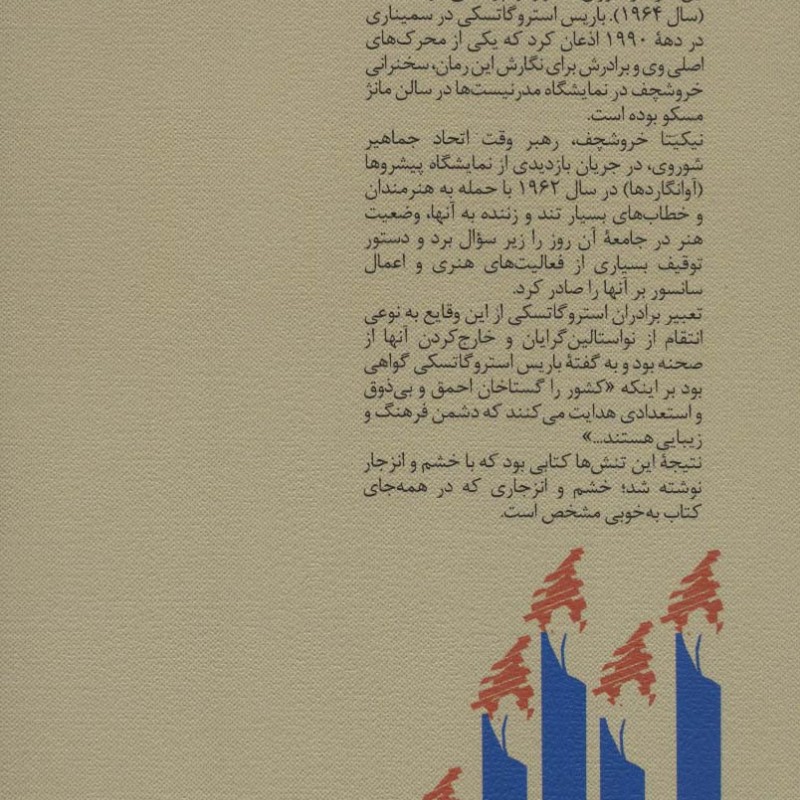 (سال ۱۹۶۴). باریس استروگاتسکی در سمیناری
در دههٔ ۱۹۹۰ اذعان کرد که یکی از محرک‌های
اصلی وی و برادرش برای نگارش این رمان، سخنرانی
خروشچف در نمایشگاه مدرنیست‌ها در سالن مانژ
مسکو بوده است.
نیکیتا خروشچف، رهبر وقت اتحاد جماهیر
شوروی، در جریان بازدیدی از نمایشگاه پیشروها
(آوانگاردها) در سال ۱۹۶۲ با حمله به هنرمندان
و خطاب‌های بسیار تند و زننده به آنها، وضعیت
هنر در جامعهٔ آن روز را زیر سؤال برد و دستور
توقیف بسیاری از فعالیت‌های هنری و اعمال
سانسور بر آنها را صادر کرد.
تعبیر برادران استروگاتسکی از این وقایع به نوعی
انتقام از نواستالین‌گرایان و خارج‌کردن آنها از
صحنه بود و به گفتهٔ باریس استروگاتسکی گواهی
بود بر اینکه «کشور را گستاخان احمق و بی‌ذوق
و استعدادی هدایت می‌کنند که دشمن فرهنگ و
زیبایی هستند...»
نتیجهٔ این تنش‌ها کتابی بود که با خشم و انزجار
نوشته شد؛ خشم و انزجاری که در همه‌جای
کتاب به‌خوبی مشخص است.